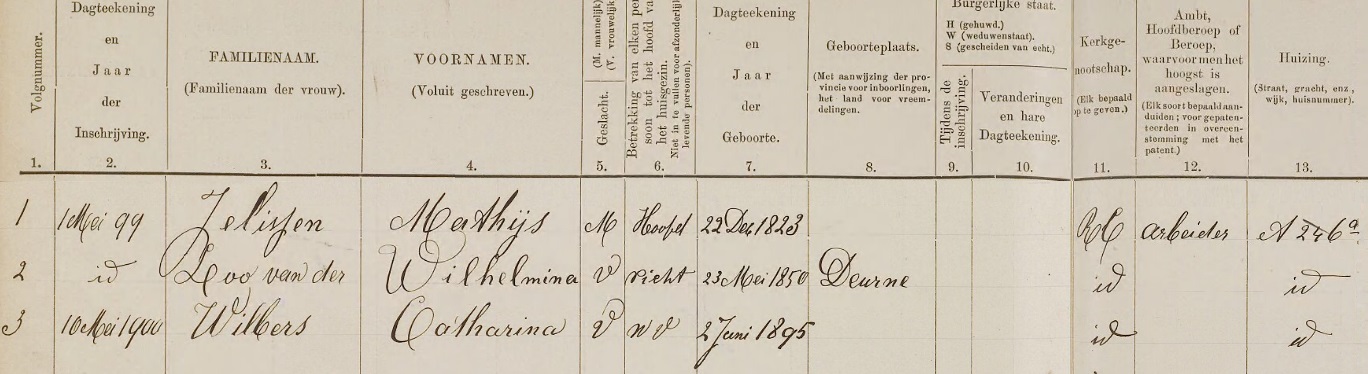 Volgnummer.
1.
Dagteekening
en
Jaar
der
Inschrijving.
2.
FAMILIENAAM.
(Familienaam der vrouw).
3.
VOORNAMEN.
(Voluit geschreven.)
4.
Geslacht. (M. mannelijk)
(V. vrouwelijk
5.
Betrekking van elken per
soon tot het hoofd va
het huisgezin.
Niet in te vullen voor afzonderlijk
levende personen.)
6.
Dagteekening
en
Jaar
der
Geboorte.
7.
Geboorteplaats.
(Met aanwijzing der pro-
vincie voor inboorlingen,
het land voor vreem-
delingen.
8.
Burgerlijke staat.
H (gehuwd.)
W (weduwenstaat).
S (gescheiden van echt.)
Tijdens de
inschrijving.
9.
Veranderingen
en hare
Dagteekening.
10.
Kerkge-
nootschap.
(Elk bepaald
op te geven.)
11.
Ambt,
Hoofdberoep of
Beroep,
waarvoor men het
hoogst is
aangeslagen.
(Elk soort bepaald aan-
duiden; voor gepaten-
teerden in overeen-
stemming met het
patent.)
12.
Huizing.
(Straat, gracht, enz.,
wijk, huisnummer).
13.
1 1 Mei 99 Jelissen Mathijs M Hoofd 22 Dec 1823 RC arbeider A 246a
2 id Loo van der Wilhelmina V nicht 23 Mei 1850 Deurne id id
3 10 Mei 1900 Wilbers Catharina V nv 2 Juni 1895 id id